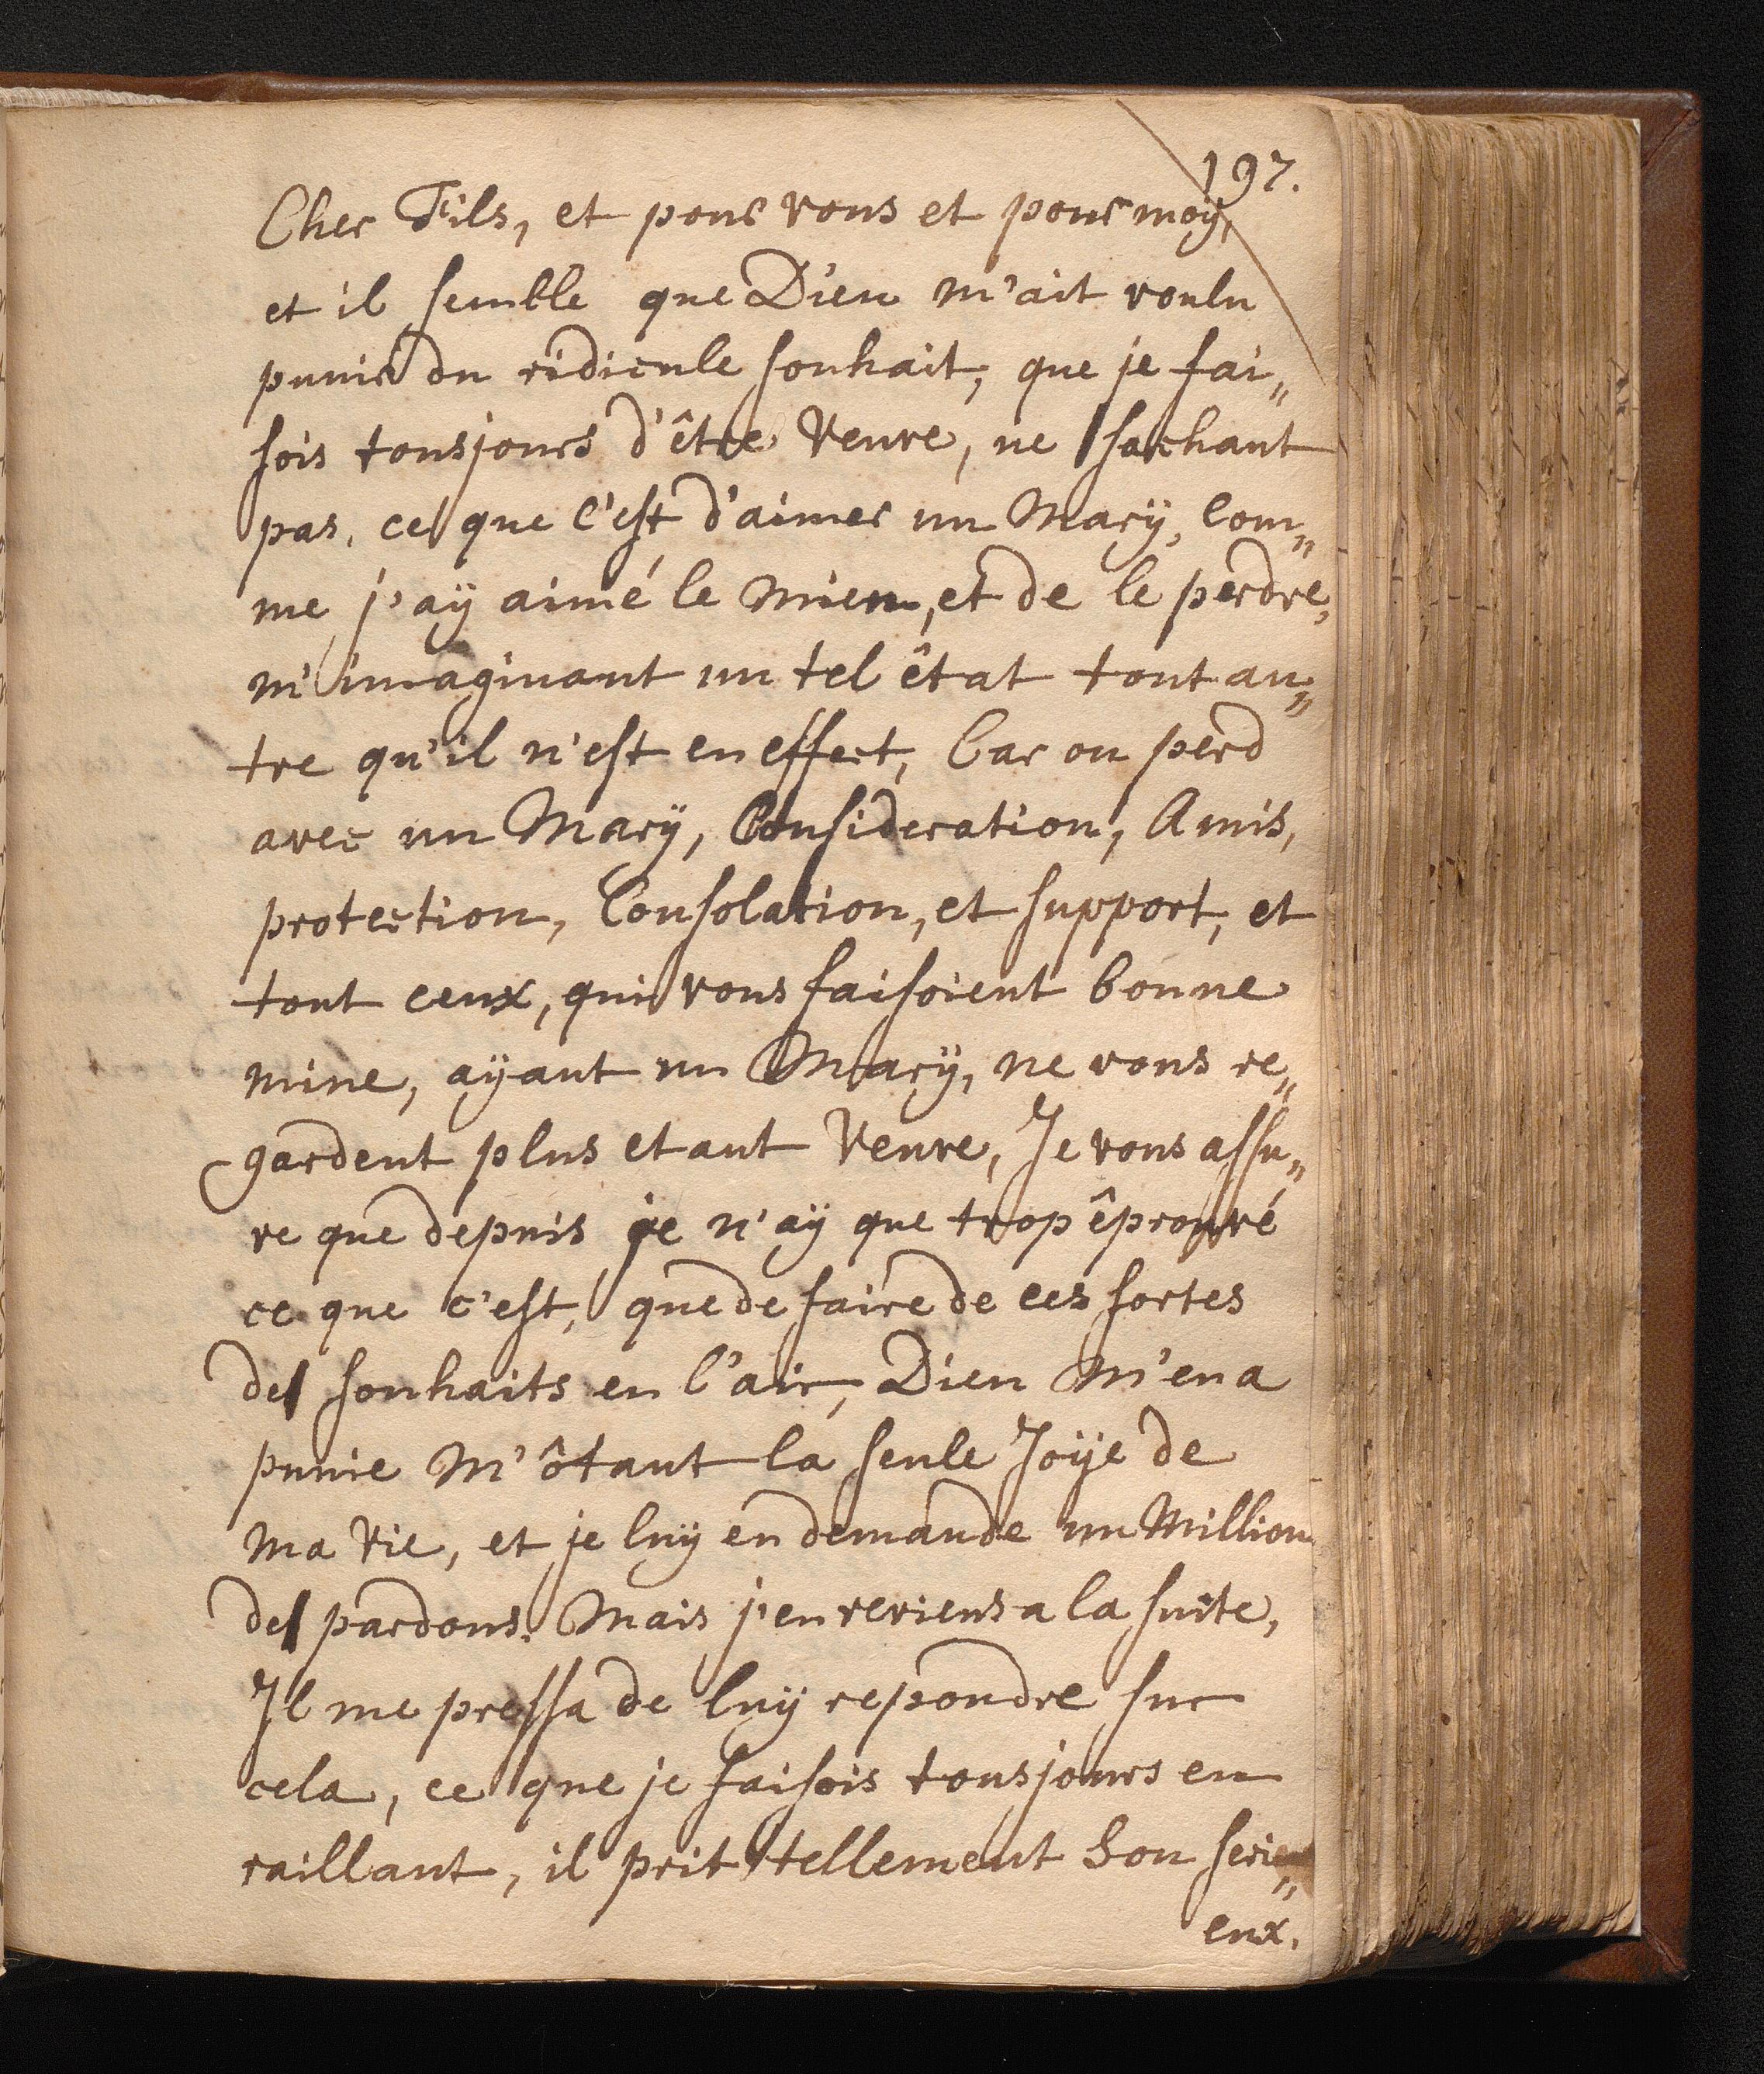 197.
Cher Fils, et pour vous et pour moy,
et il semble que Dieu m'ait voulu
punir du ridicule souhait, que je fai„
sois tousjours d'être Veuve, ne sachant
pas, ce que c'est d'aimer un Marÿ, Com„
me j'aÿ aimé le Mien, et de le perdre,
m'imaginant un tel êtat tout au„
tre qu'il n'est en effect, Car on perd
avec un Marÿ, Consideration, Amis,
protection, Consolation, et support, et
tout ceux, qui vous faisoient bonne
mine, aÿant un Marÿ, ne vous re„
gardent plus etant Veuve, Je vous assu„
re que depuis je n'aÿ que trop êprouvé
ce que c'est, que de faire de ces sortes
de souhaits en l'air, Dieu M'en a
punie M'ôtant la seule Joÿe de
ma Vie, et je luÿ en demande un Million
de pardons. Mais j'en reviens a la suite,
Il me pressa de luÿ repondre sur
cela, ce que je faisois tousjours en
raillant, il prit tellement Son seri„
eux.